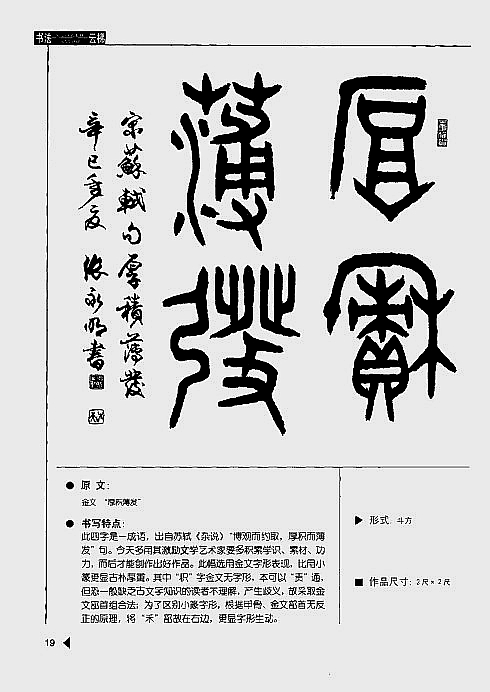 书法 云梯
厚積
薄發
宋蘇軾句厚積薄發
辛巳季夏 張永明書
● 原 文：
金文 “厚积薄发”
● 书写特点：
此四字是一成语，出自苏轼《杂说》“博观而约取，厚积而薄
发”句。今天多用其激励文学艺术家要多积累学识、素材、功
力，而后才能创作出好作品。此幅选用金文字形表现，比用小
篆更显古朴厚重。其中“积”字金文无字形，本可以“责”通，
但恐一般缺乏古文字知识的读者不理解，产生歧义，故采取金
文部首组合法；为了区别小篆字形，根据甲骨、金文部首无反
正的原理，将“禾”部放在右边，更显字形生动。
▶ 形式：斗方
■ 作品尺寸：2尺×2尺
19 ◀